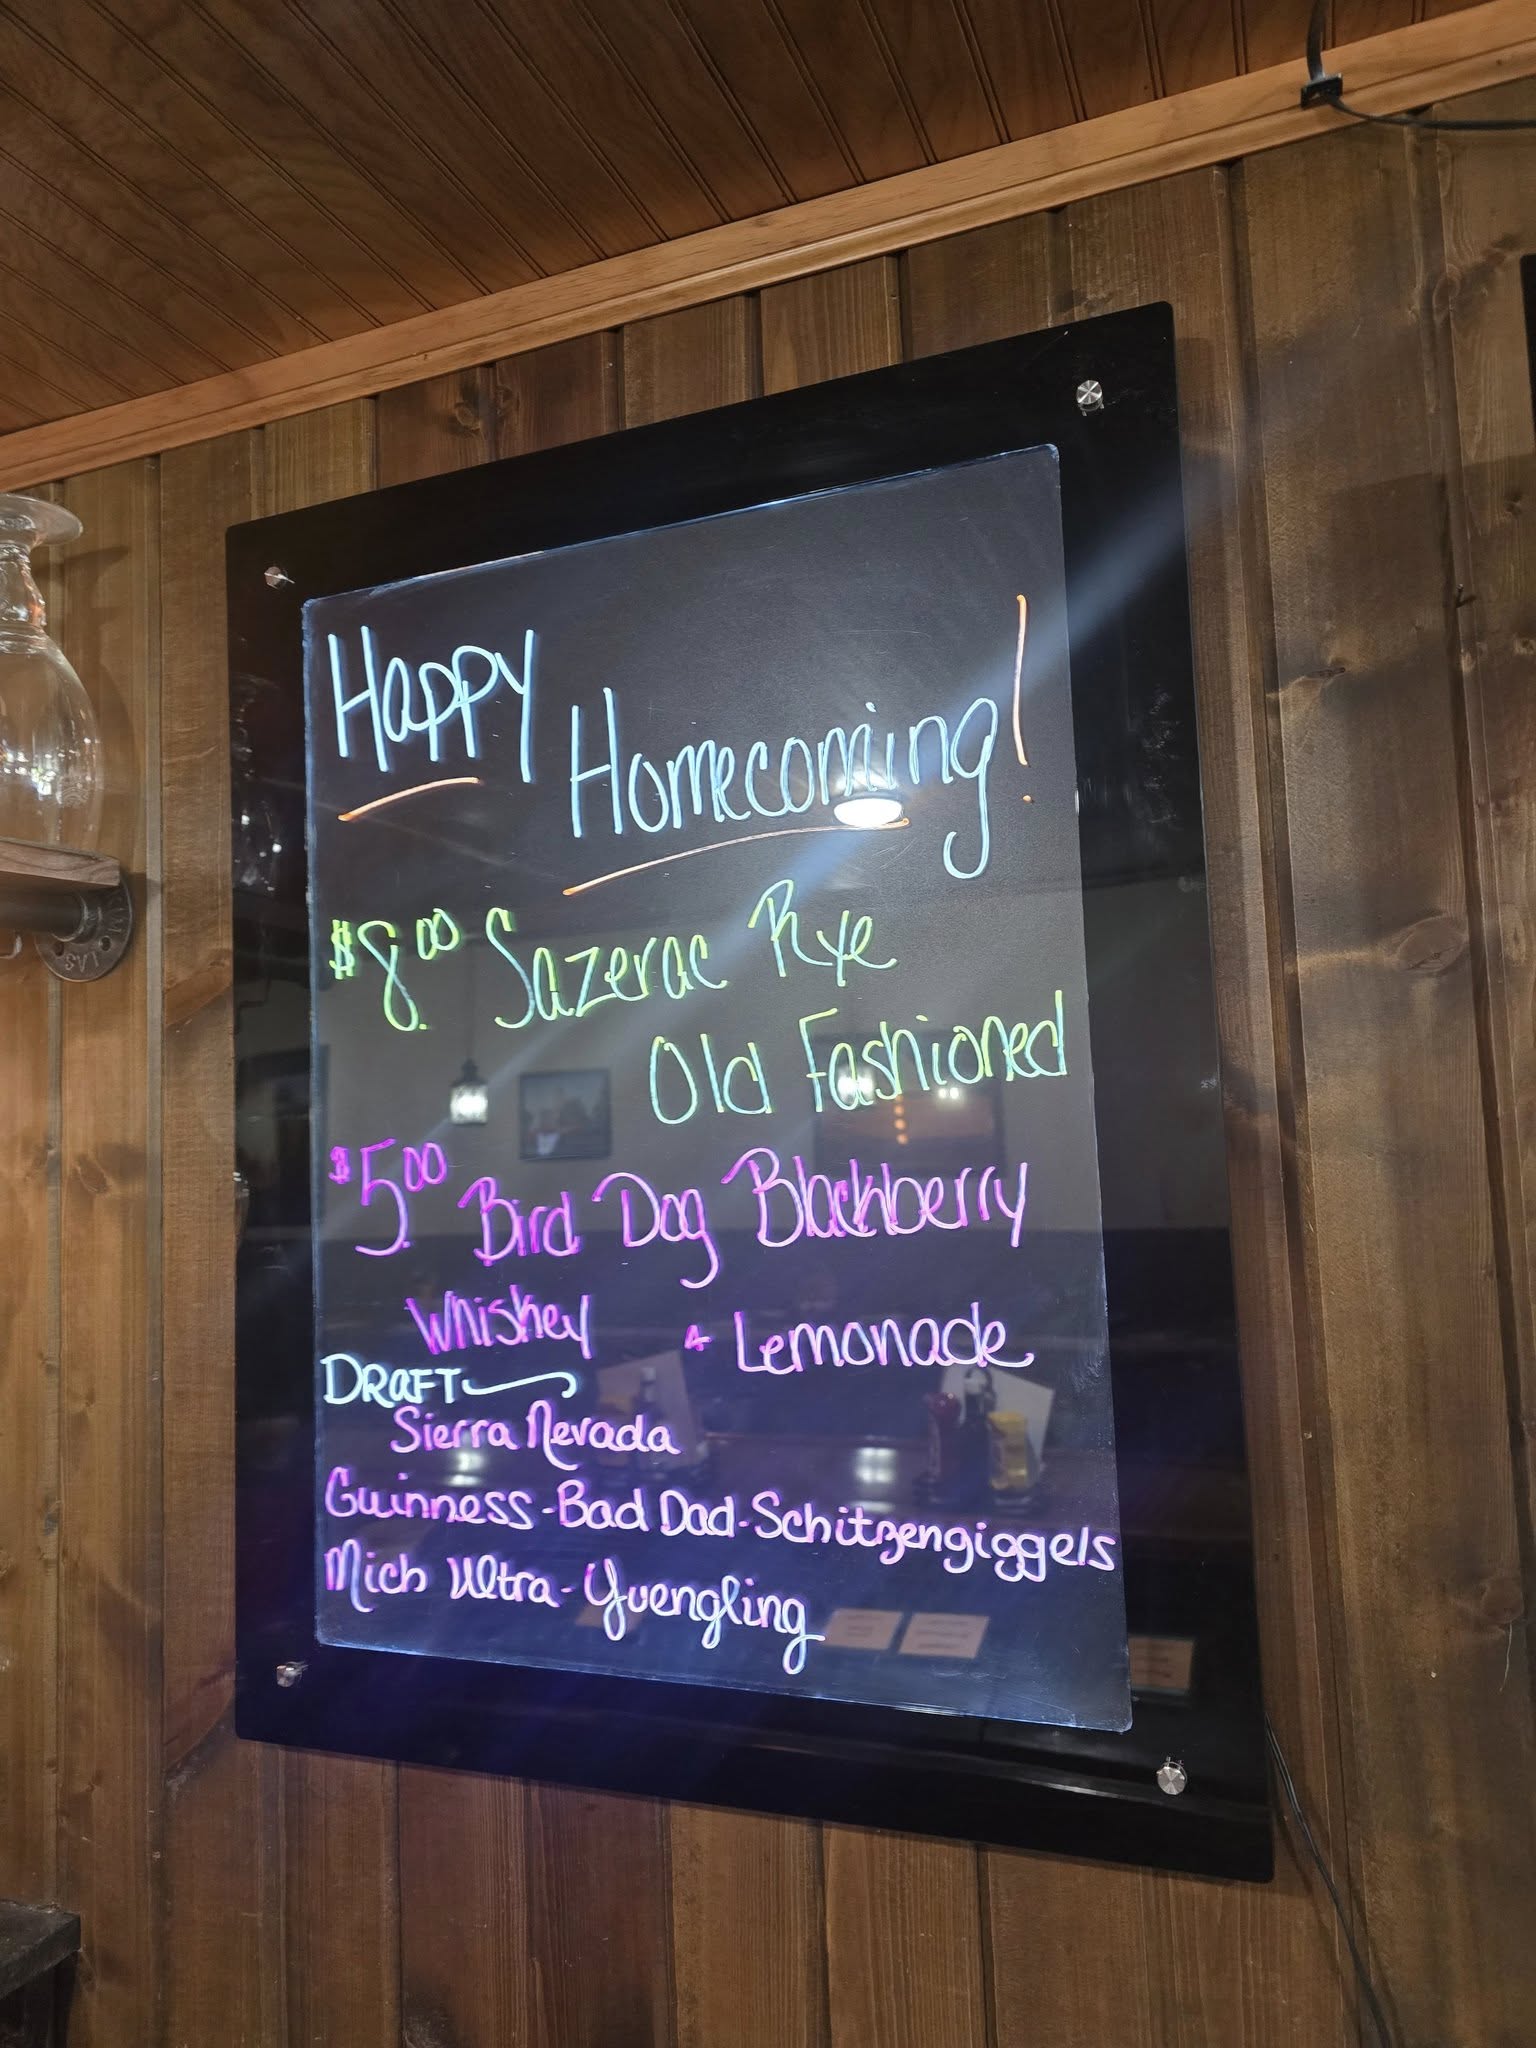 Happy
Homecoming!
$8.00 Sazerac Rye
Old Fashioned
$5.00 Bird Dog Blackberry
Whiskey & Lemonade
DRAFT
Sierra Nevada
Guinness-Bad Dad-Schitzengiggels
Mich Ultra-Yuengling